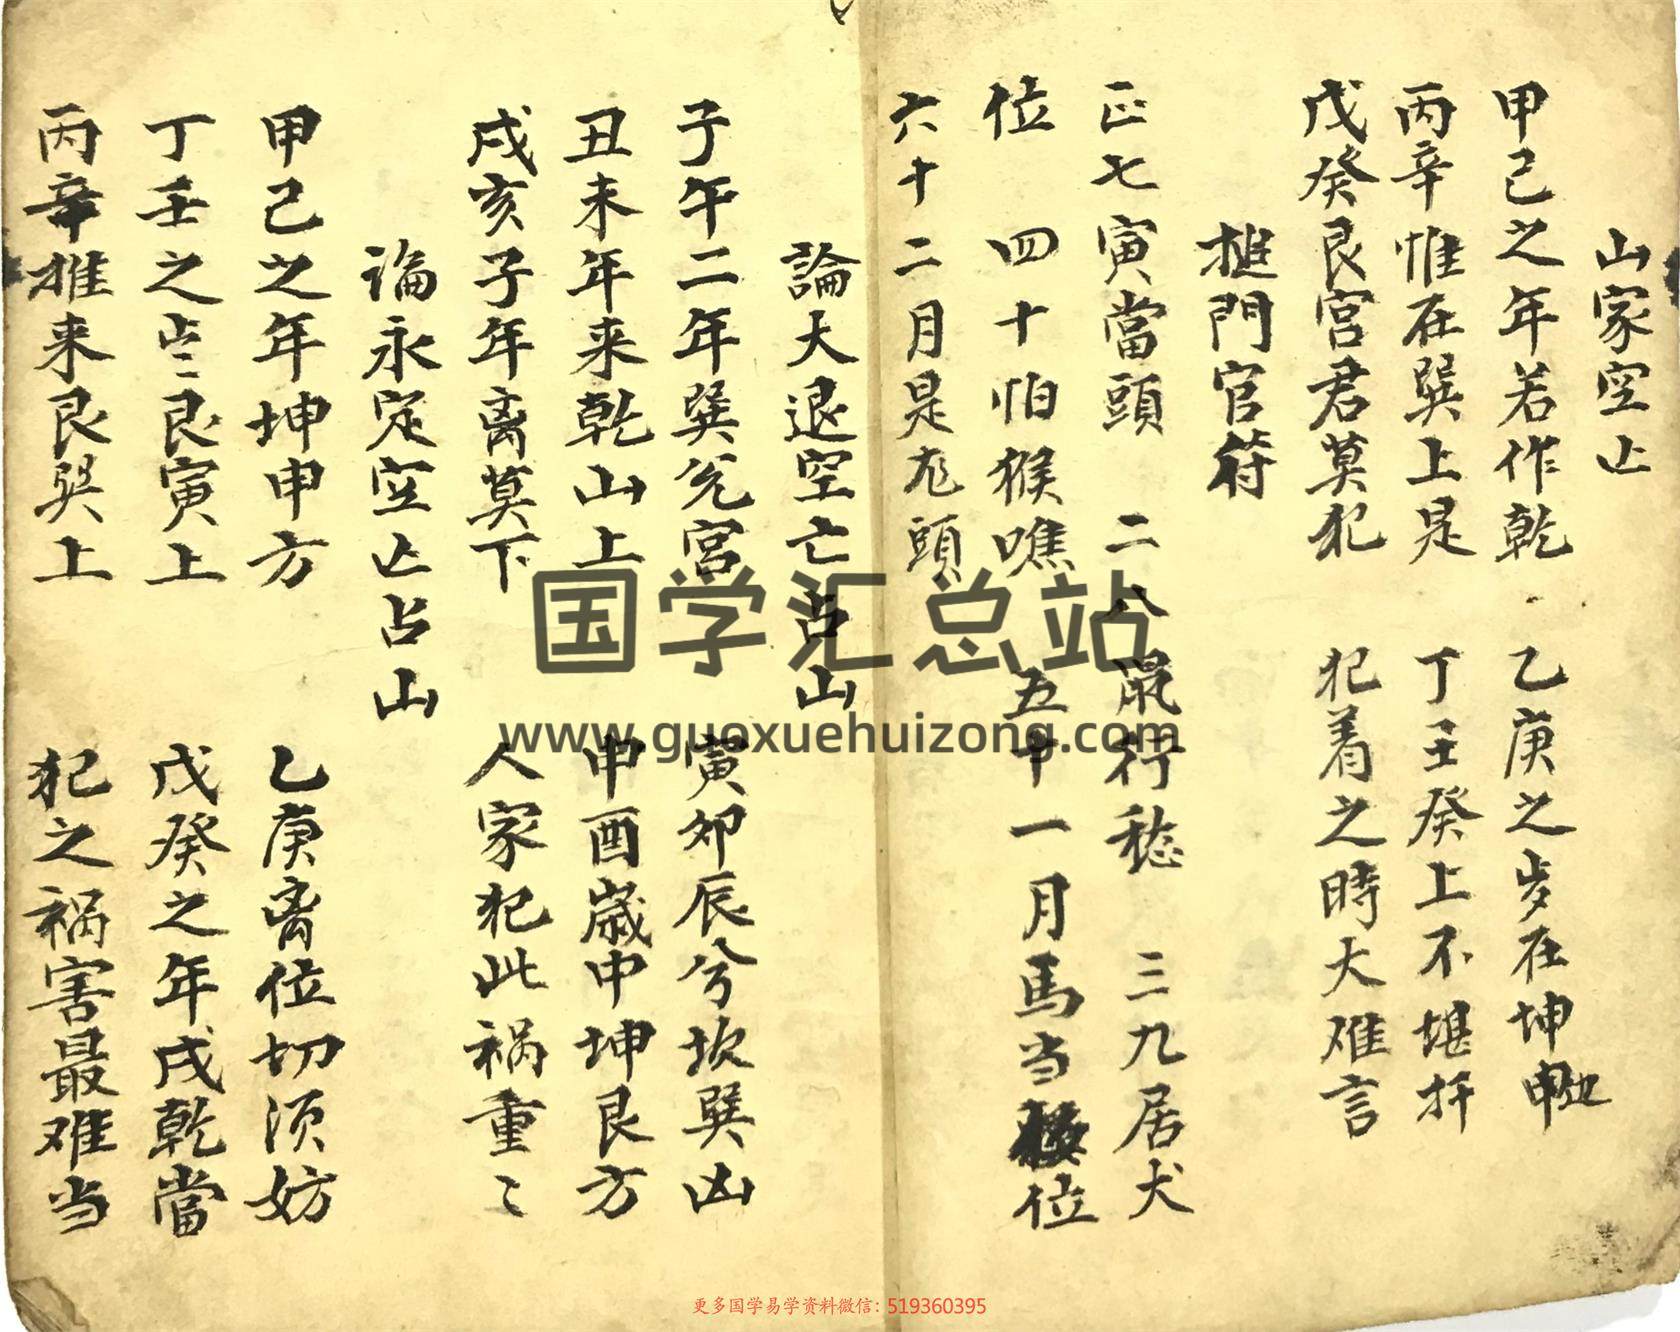 山家空亡
甲己之年若作乾 乙庚之岁在坤申地
丙辛惟在巽上是 丁壬癸上不堪扦
戊癸艮宫君莫犯 犯着之時大难言
搥門官符
正七寅當頭 二八鼠行稔 三九居犬
位 四十怕猴噍 五十一月馬当位
六十二月是龙頭
論大退空亡占山
子午二年巽兊宫 寅卯辰兮坎巽凶
丑未年来乾山上 申酉歲中坤艮方
戌亥子年离莫下 人家犯此祸重〻
論永定空亡占山
甲己之年坤申方 乙庚离位切须妨
丁壬之岁艮寅上 戊癸之年戌乾當
丙辛推来艮巽上 犯之祸害最难当
国学汇总站
www.guoxuehuizong.com
更多国学易学资料微信：519360395